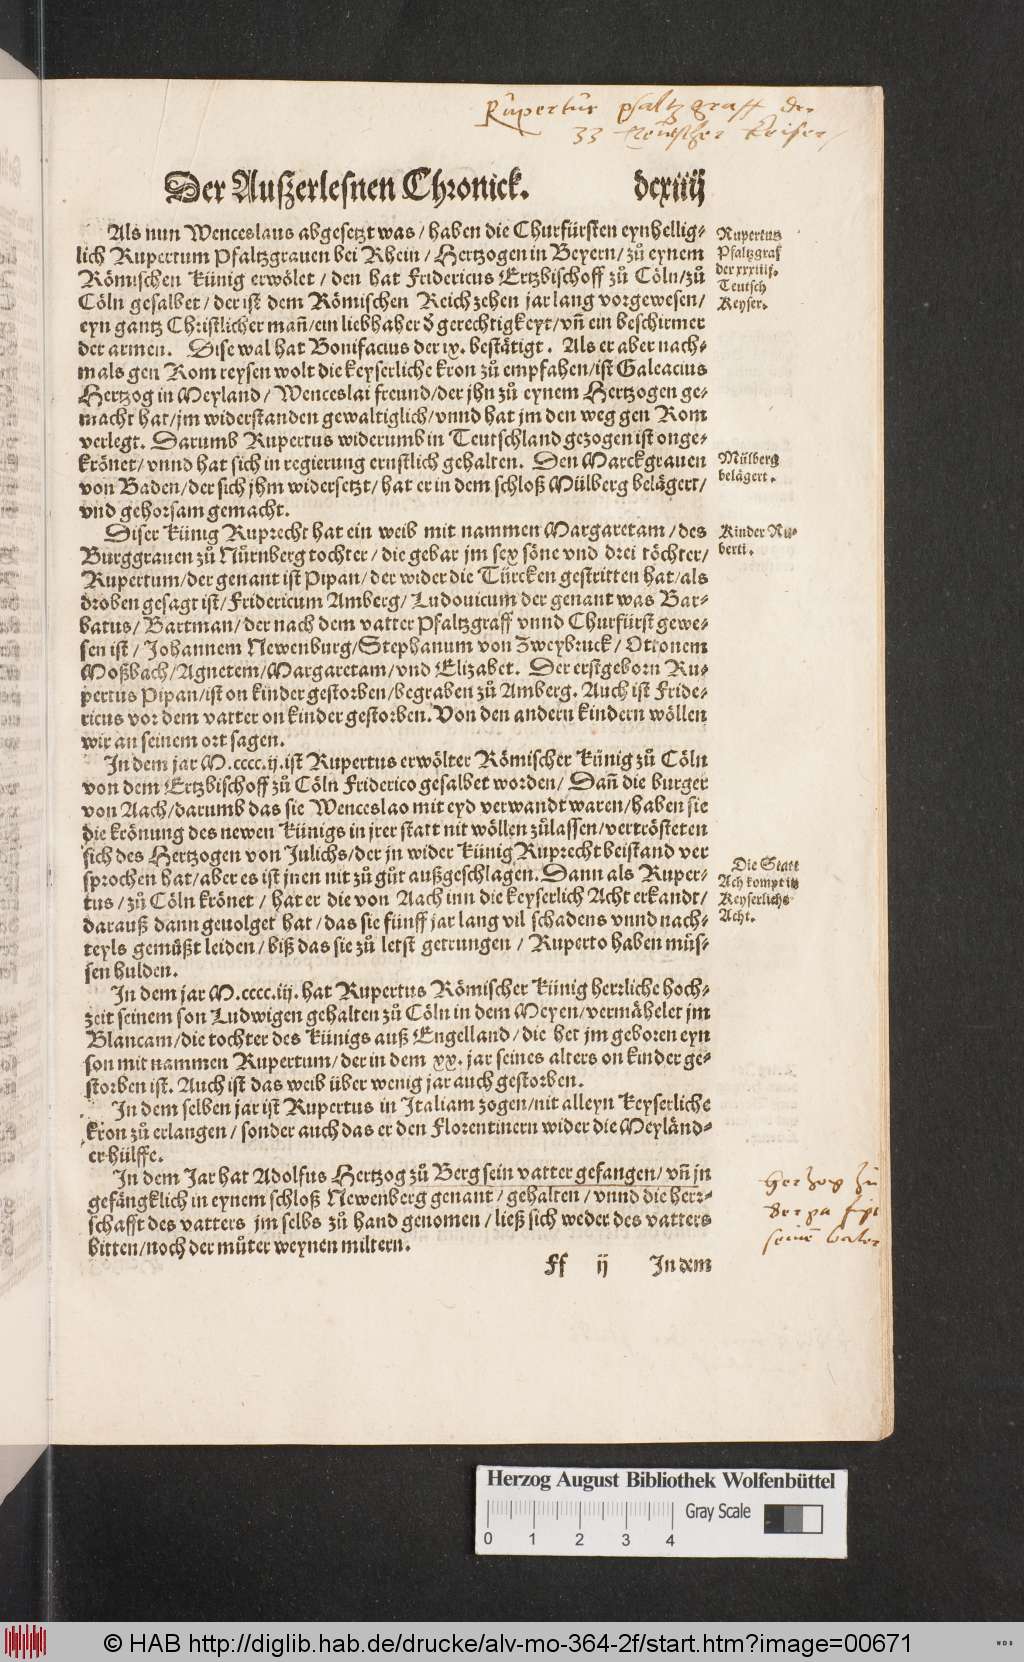 Rupertus pfaltzgraff der
33 Teutscher keiser
Der Außerlesnen Chronick. dcxiiij
Als nun Wenceslaus abgesetzt was / haben die Churfürsten eynhellig-
lich Rupertum Pfaltzgrauen bei Rhein / Hertzogen in Beyern / zů eynem
Römischen Künig erwölet / den hat Fridericus Ertzbischoff zů Cöln / zů
Cöln gesalbet / der ist dem Römischen Reich zehen jar lang vorgewesen /
eyn gantz Christlicher mañ / ein liebhaber d̕ gerechtigkeyt / vñ ein beschirmer
der armen. Dise wal hat Bonifacius der ix. bestätigt. Als er aber nach-
mals gen Rom reysen wolt die keyserliche kron zů empfahen / ist Galeacius
Hertzog in Meyland / Wenceslai freund / der jhn zů eynem Hertzogen ge-
macht hat / jm widerstanden gewaltiglich / vnnd hat jm den weg gen Rom
verlegt. Darumb Rupertus widerumb in Teutschland gezogen ist onge-
krönet / vnnd hat sich in regierung ernstlich gehalten. Den Marckgrauen
von Baden / der sich jhm widersetzt / hat er in dem schloß Mülberg belägert /
vnd gehorsam gemacht.
Diser Künig Ruprecht hat ein weib mit nammen Margaretam / des
Burggrauen zů Nůrnberg tochter / die gebar jm sex söne vnd drei töchter /
Rupertum / der genant ist Pipan / der wider die Türcken gestritten hat / als
droben gesagt ist / Fridericum Amberg / Ludouicum der genant was Bar-
batus / Bartman / der nach dem vatter Pfaltzgraff vnnd Churfürst gewe-
sen ist / Johannem Newenburg / Stephanum von Zweybruck / Ottonem
Moßbach / Agnetem / Margaretam / vnd Elizabet. Der erstgeborn Ru-
pertus Pipan / ist on kinder gestorben / begraben zů Amberg. Auch ist Fride-
ricus vor dem vatter on kinder gestorben. Von den andern kindern wöllen
wir an seinem ort sagen.
In dem jar M.cccc.ij. ist Rupertus erwölter Römischer Künig zů Cöln
von dem Ertzbischoff zů Cöln Friderico gesalbet worden / Dañ die burger
von Aach / darumb das sie Wenceslao mit eyd verwandt waren / haben sie
die krönung des newen Künigs in jrer statt nit wöllen zůlassen / vertrösteten
sich des Hertzogen von Julichs / der jn wider Künig Ruprecht beistand ver
sprochen hat / aber es ist jnen nit zů gůt außgeschlagen. Dann als Ruper-
tus / zů Cöln krönet / hat er die von Aach inn die keyserlich Acht erkandt /
darauß dann geuolget hat / das sie fünff jar lang vil schadens vnnd nach-
teyls gemüßt leiden / biß das sie zů letst getrungen / Ruperto haben müs-
sen hulden.
In dem jar M.cccc.iij. hat Rupertus Römischer Künig herrliche hoch-
zeit seinem son Ludwigen gehalten zů Cöln in dem Meyen / vermähelet jm
Blancam / die tochter des Künigs auß Engelland / die het jm geboren eyn
son mit nammen Rupertum / der in dem xx. jar seines alters on kinder ge-
storben ist. Auch ist das weib über wenig jar auch gestorben.
In dem selben jar ist Rupertus in Italiam zogen / nit alleyn Keyserliche
Kron zů erlangen / sonder auch das er den Florentinern wider die Meyländ-
er hülffe.
In dem Jar hat Adolfus Hertzog zů Berg sein vatter gefangen / vñ jn
gefängklich in eynem schloß Newenberg genant / gehalten / vnnd die herr-
schafft des vatters jm selbs zů hand genomen / ließ sich weder des vatters
bitten / noch der můter weynen miltern.
Ff ij In dem
Rupertus
Pfaltzgraf
der xxxiiij.
Teutsch
Keyser.
Mülberg
belägert.
Kinder Ru-
berti.
Die Statt
Ach kompt in
Keyserliche
Acht.
Hertzog zu
seine vater
Herzog August Bibliothek Wolfenbüttel
Gray Scale
0 1 2 3 4
© HAB http://diglib.hab.de/drucke/alv-mo-364-2f/start.htm?image=00671